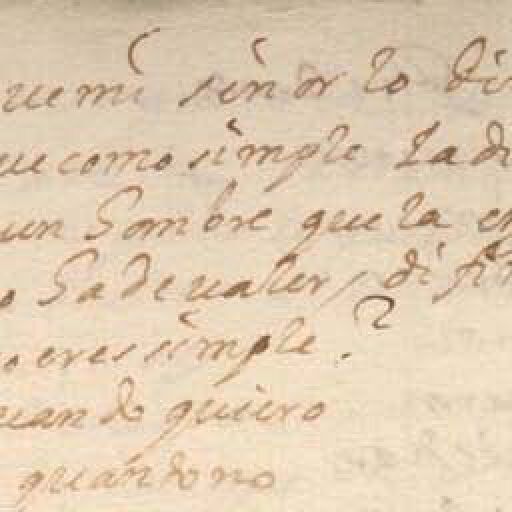 uemi señor lo di
ue como simple la di
un hombre que la en
o ha de ualer, di fin
o eres simple.?
uando quiero
quando no